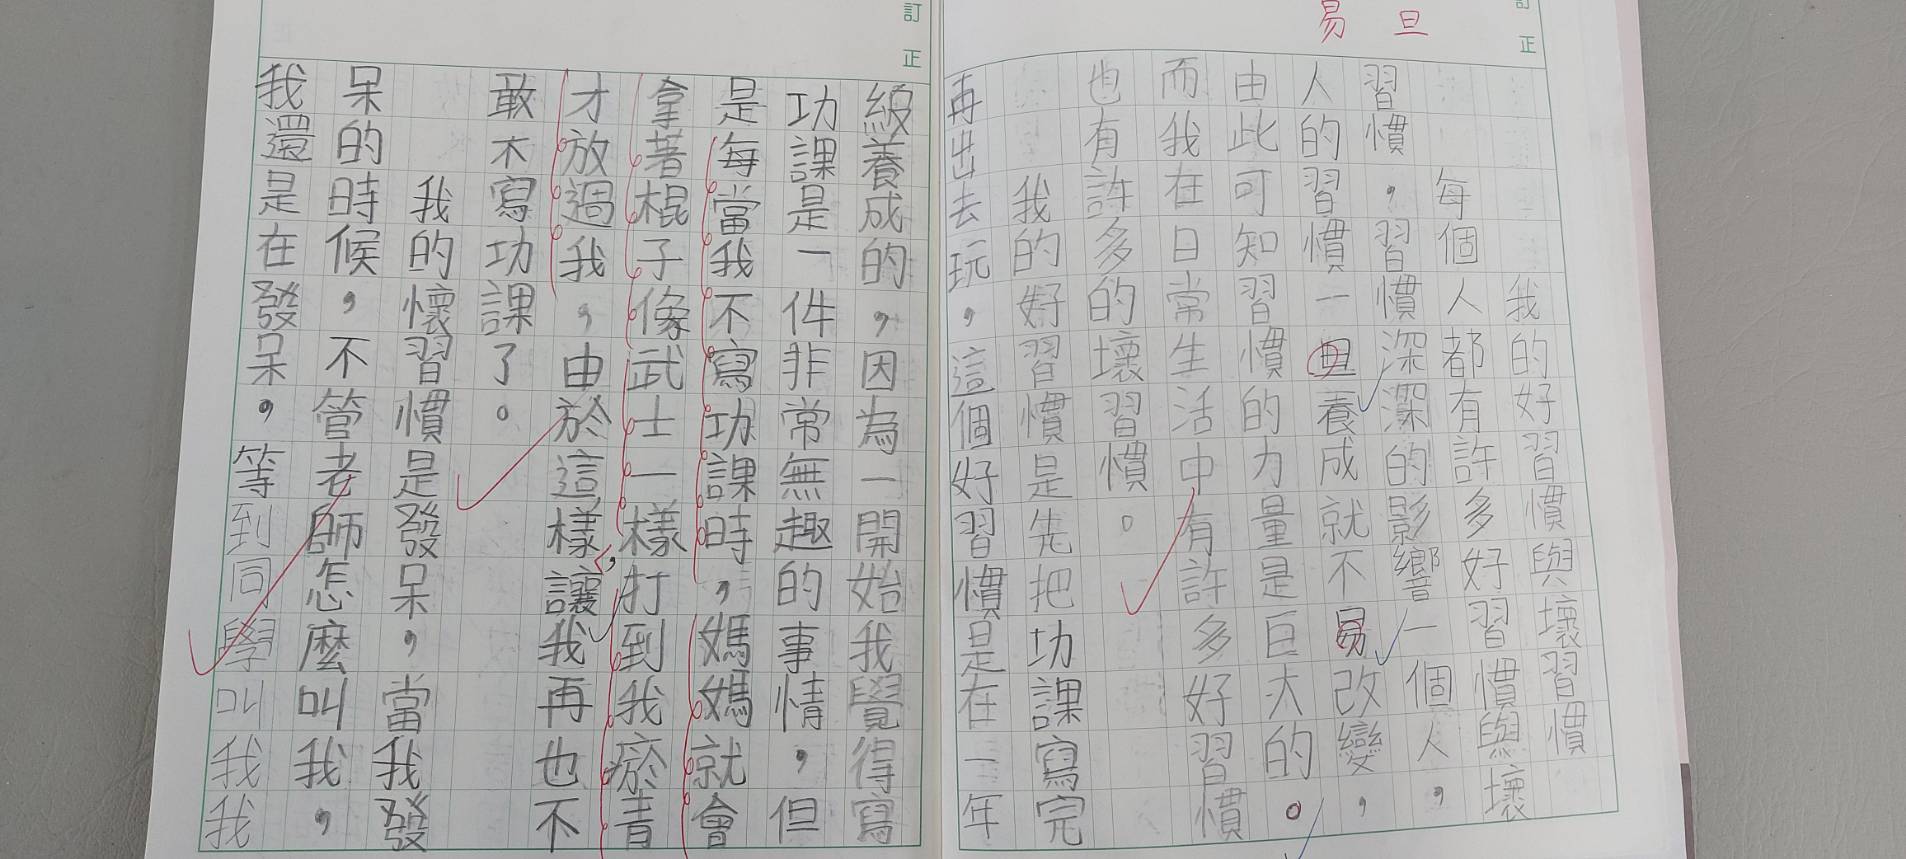 訂正
易 旦
我的好習慣與壞習慣
每個人都有許多好習慣與壞
習慣，習慣深深的影響一個人，
人的習慣一旦養成就不易改變，
由此可知習慣的力量是巨大的。
而我在日常生活中有許多好習慣
也有許多的壞習慣。
我的好習慣是先把功課寫完
再出去玩，這個好習慣是在一年
訂正
級養成的，因為一開始我覺得寫
功課是一件非常無趣的事情，但
是每當我不寫功課時，媽媽就會
拿著棍子像武士一樣打到我瘀青
才放過我，由於這樣，讓我再也不
敢不寫功課了。
我的懷習慣是發呆，當我發
呆的時候，不管老師怎麼叫我，
我還是在發呆，等到同學叫我我